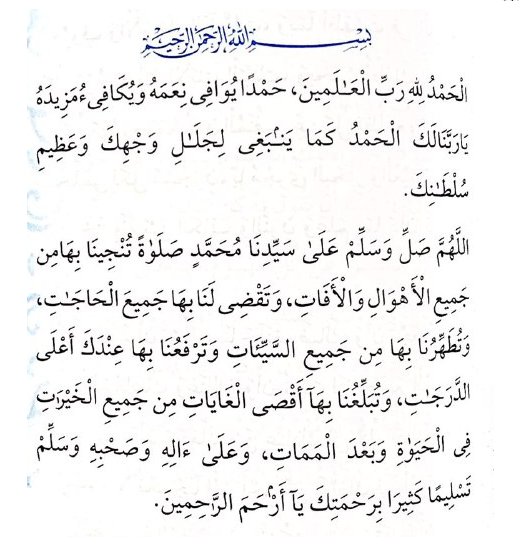 بِسْمِ اللهِ الرَّحْمٰنِ الرَّحِيْمِ
الْحَمْدُ لِلّٰهِ رَبِّ الْعَـٰلَمِينَ، حَمْدًا يُوَافِى نِعَمَهُ وَيُكَافِىءُ مَزِيدَهُ
يَارَبَّنَالَكَ الْحَمْدُ كَمَا يَنۢبَغِى لِجَلَـٰلِ وَجْهِكَ وَعَظِيمِ
سُلْطَـٰنِكَ.
اللَّهُمَّ صَلِّ وَسَلِّمْ عَلَىٰ سَيِّدِنَا مُحَمَّدٍ صَلَوٰةً تُنْجِينَا بِهَامِن
جَمِيعِ الْأَهْوَالِ وَالْأَفَاتِ، وَتَقْضِى لَنَا بِهَا جَمِيعَ الْحَاجَـٰتِ،
وَتُطَهِّرُنَا بِهَا مِن جَمِيعِ السَّيِّئَاتِ وَتَرْفَعُنَا بِهَا عِندَكَ أَعْلَى
الدَّرَجَـٰتِ، وَتُبَلِّغُنَا بِهَآ أَقْصَى الْغَايَاتِ مِن جَمِيعِ الْخَيْرَٰتِ
فِى الْحَيَوٰةِ وَبَعْدَ الْمَمَاتِ، وَعَلَىٰ ءَالِهِ وَصَحْبِهِ وَسَلِّمْ
تَسْلِيمًا كَثِيرًا بِرَحْمَتِكَ يَآ أَرْحَمَ الرَّٰحِمِينَ.